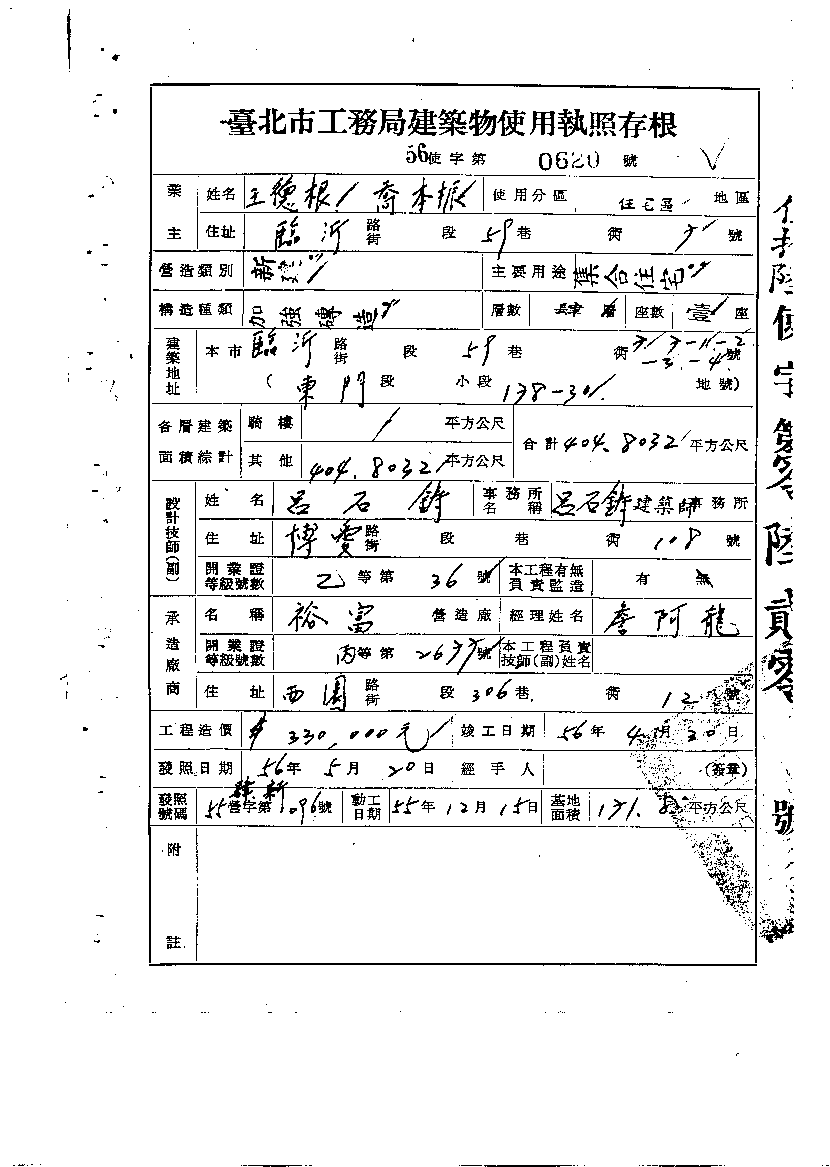 臺北市工務局建築物使用執照存根
56使字第 0620 號
業主 姓名 王德根 喬本振 使用分區 住宅區 地區
住址 臨沂 路街 段 59巷 衖 號
營造類別 新建 主要用途 集合住宅
構造種類 加強磚造 層數 肆層 座數 壹座
建築地址 本市 臨沂 路街 段 59巷 衖 號
(東門段 小段 138-30 地號)
各層建築面積綜計 騎樓 平方公尺 合計404.8032平方公尺
其他 404.8032平方公尺
設計技師(副) 姓名 呂石 事務所名稱 呂石 建築師事務所
住址 博愛 路街 段 巷 衖 108號
開業證等級號數 乙等第 36號 本工程有無負責監造 有 無
承造廠商 名稱 裕富 營造廠 經理姓名 詹阿龍
開業證等級號數 丙等第 號 本工程負責技師(副)姓名
住址 西園 路街 段 306巷 衖 12號
工程造價 $330,000元 竣工日期 56年4月30日
發照日期 56年5月20日 經手人 (簽章)
發照號碼 55營字第1096號 動工日期 55年12月15日 基地面積 平方公尺
附註
使字第零陸貳零號